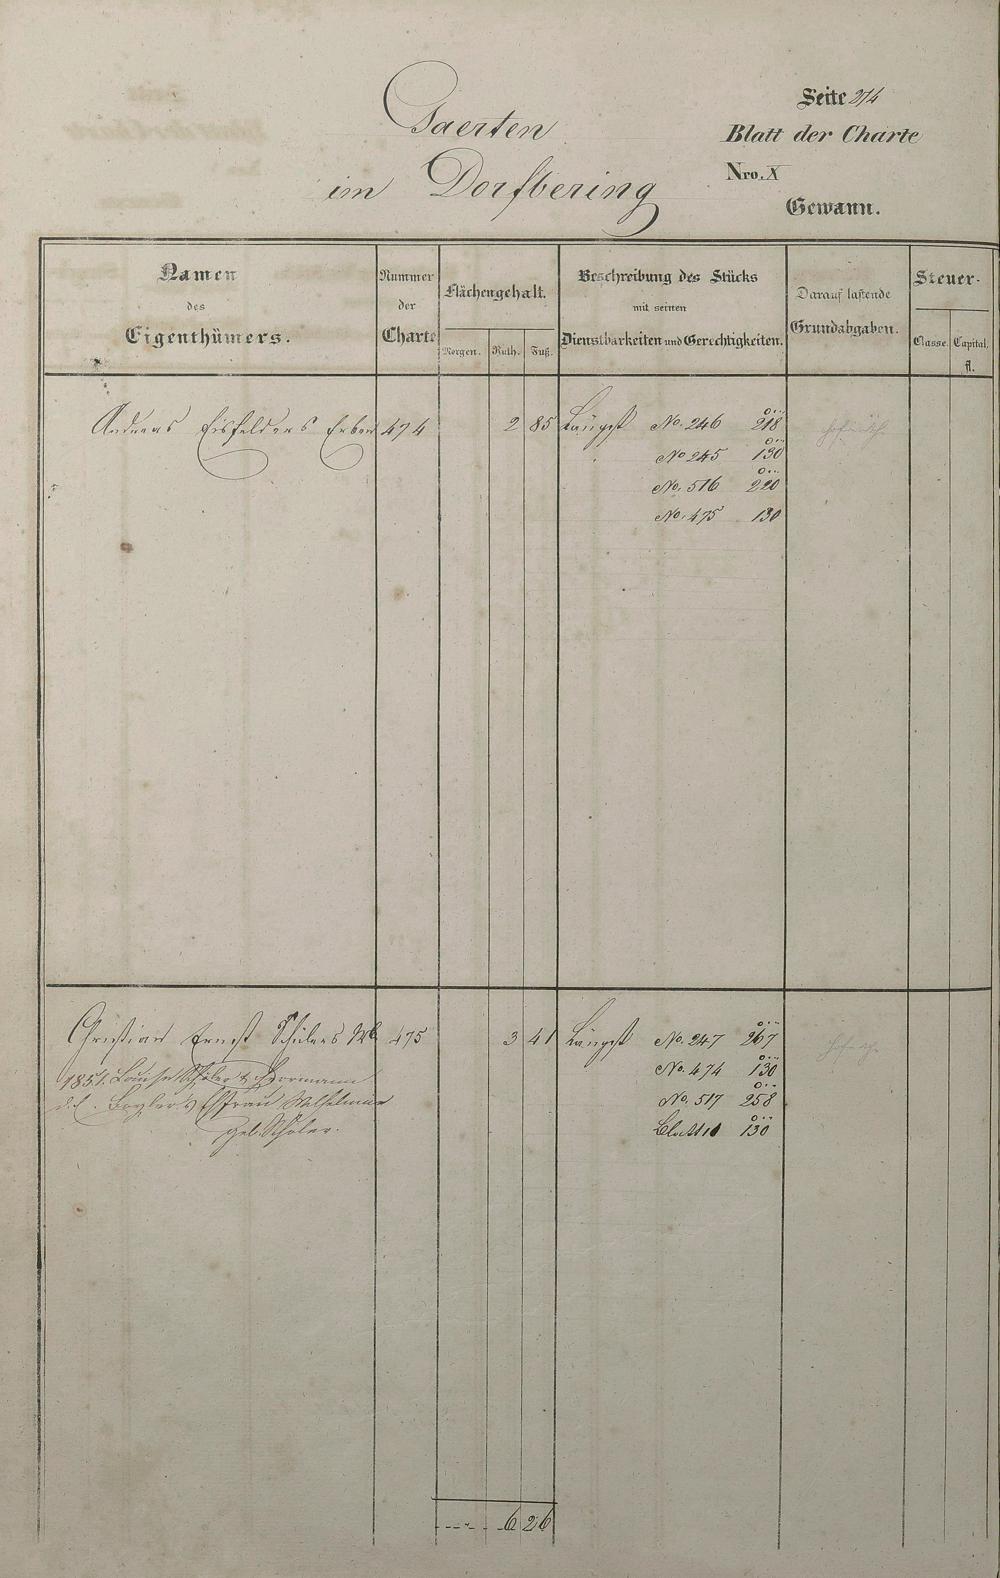 Seite 274
Gaerten
Blatt der Charte
im Dorfbering
Nro. X
Gewann.
Namen
des
Eigenthümers.
Nummer
der
Charte
Flächengehalt.
Morgen. Ruth. Fuß.
Beschreibung des Stücks
mit seinen
Dienstbarkeiten und Gerechtigkeiten.
Darauf lastende
Grundabgaben.
Steuer-
Classe. Capital.
fl.
Andreas Eisfelders Erben 474 2 85 Längst No. 246 218
No 245 130
No. 516 220
No. 475 130
Christian Ernst Schülers Wb 475 3 41 Längst No. 247 267
1851. Louise Schöler & Hermann No. 474 130
d. E. Frau Wilhelmine No. 517 258
geb. Schöler. 130
6 26